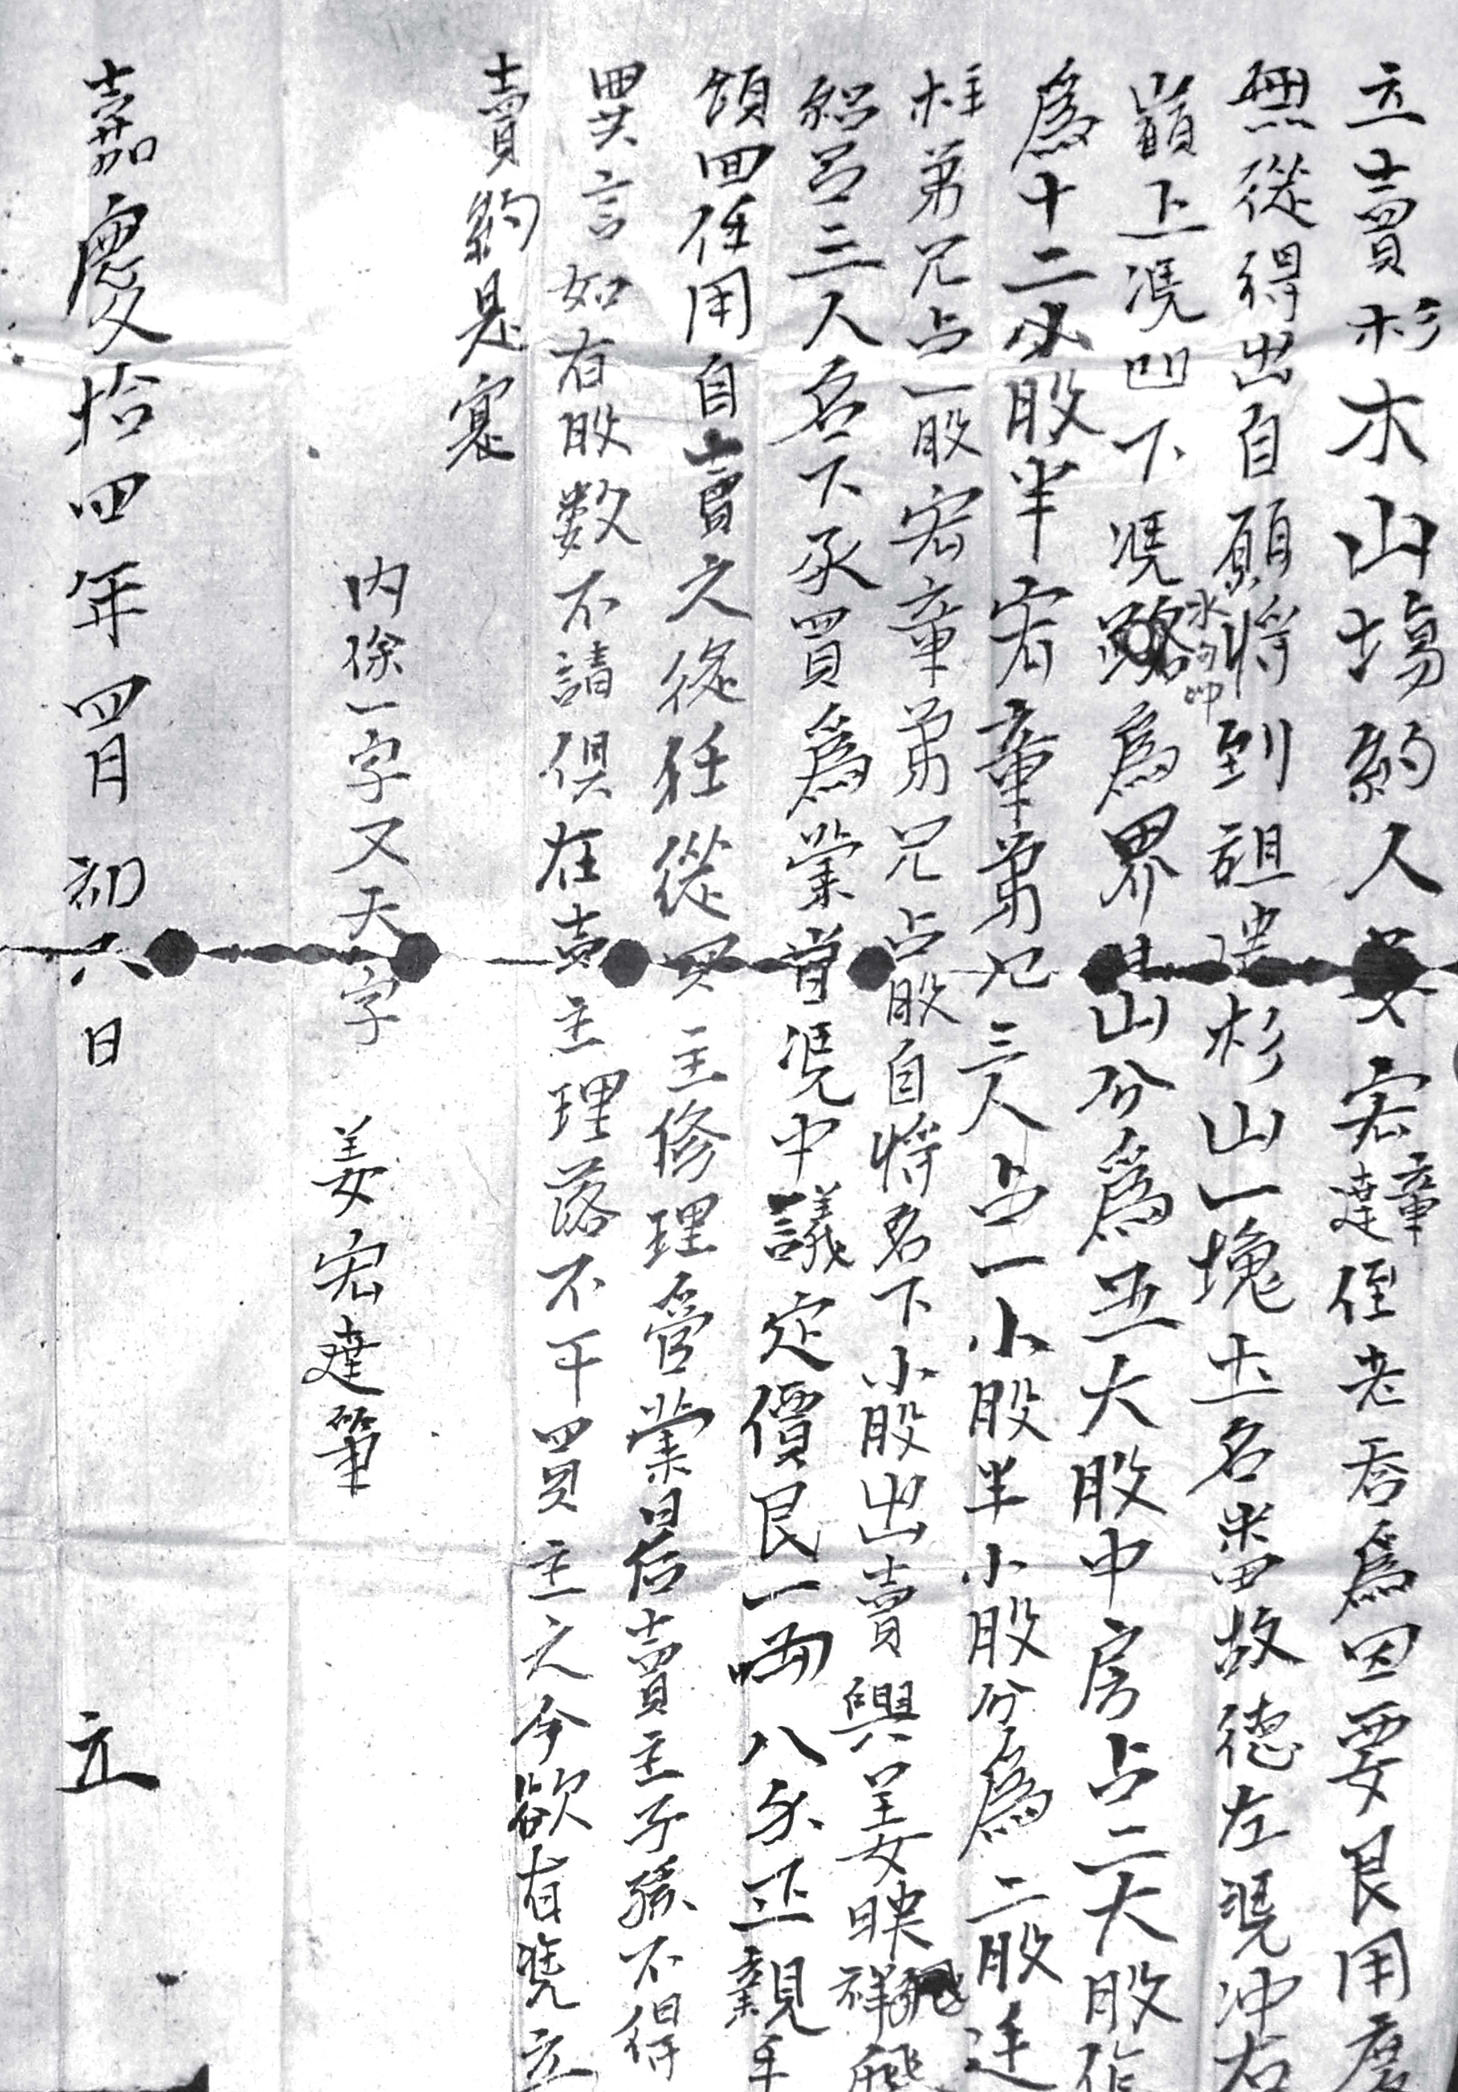 立賣杉木山塲約人姜宏章達侄老岩爲因要艮用度
無從得出自願將到祖遺杉山一塊土名畨故德左凴冲右
嶺上凴凹下凴路水沟冲爲界此山分爲五大股中房占二大股作
爲十二小股半宏章弟兄三人占一小股半小股分爲二股连
柱弟兄占一股宏章弟兄占股自將名下小股出賣與姜映祥
紹呂三人名下承買爲業當凴中議定價艮一両八分正親手
領回任用自賣之後任從買主修理管業日后賣主子孫不得
異言如有股数不請俱在賣主理落不干買主之今欲有凴立
賣約是寔
内除一字又天字 姜宏達筆
嘉慶拾四年四月初六日 立